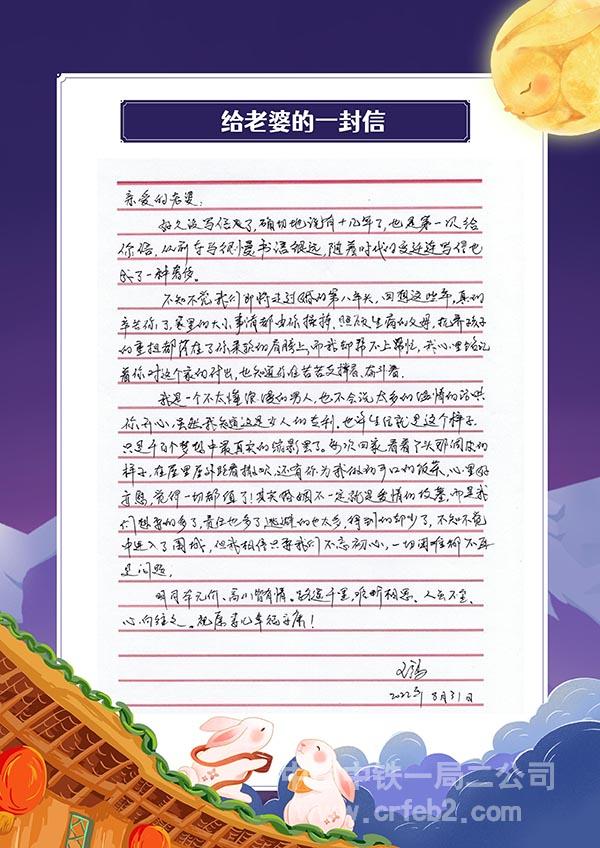 给老婆的一封信
亲爱的老婆：
好久没写信了，确切地说有十几年了，也是第一次给
你信，从前车马很慢书信很远，随着时代的变迁连写信也
成了一种奢侈。
不知不觉我们即将走过婚的第八年头，回想这些年，真的
辛苦你了，家里的大小事情都由你操持，照顾生病的父母，抚养孩子
的重担都落在了你柔软的肩膀上，而我却帮不上啥忙，我心里惦记
着你对这个家的付出，也知道你在苦苦支撑着、奋斗着。
我是一个不太懂浪漫的男人，也不会说太多的温情的话哄
你开心，虽然我知道这是女人的专利。也许生活就是这个样子，
只是千百个梦想中最真实的缩影罢了。每次回家看着丫头那调皮的
样子，在屋里屋外跑着撒欢，还有你为我做的可口的饭菜，心里好
，觉得一切都值了！其实婚姻不一定就是爱情的坟墓，而是我
们想要的多了，责任也多了逃避的也太多，得到的却少了，不知不觉
中进入了围城，但我相信只要我们不忘初心，一切困难都不再
是问题。
明月本无价，高山皆有情。路遥千里，难断相思。人虽不至，
心向往之。祝愿老婆幸福安康！
2022年8月31日
中铁一局二公司
www.crfeb2.com